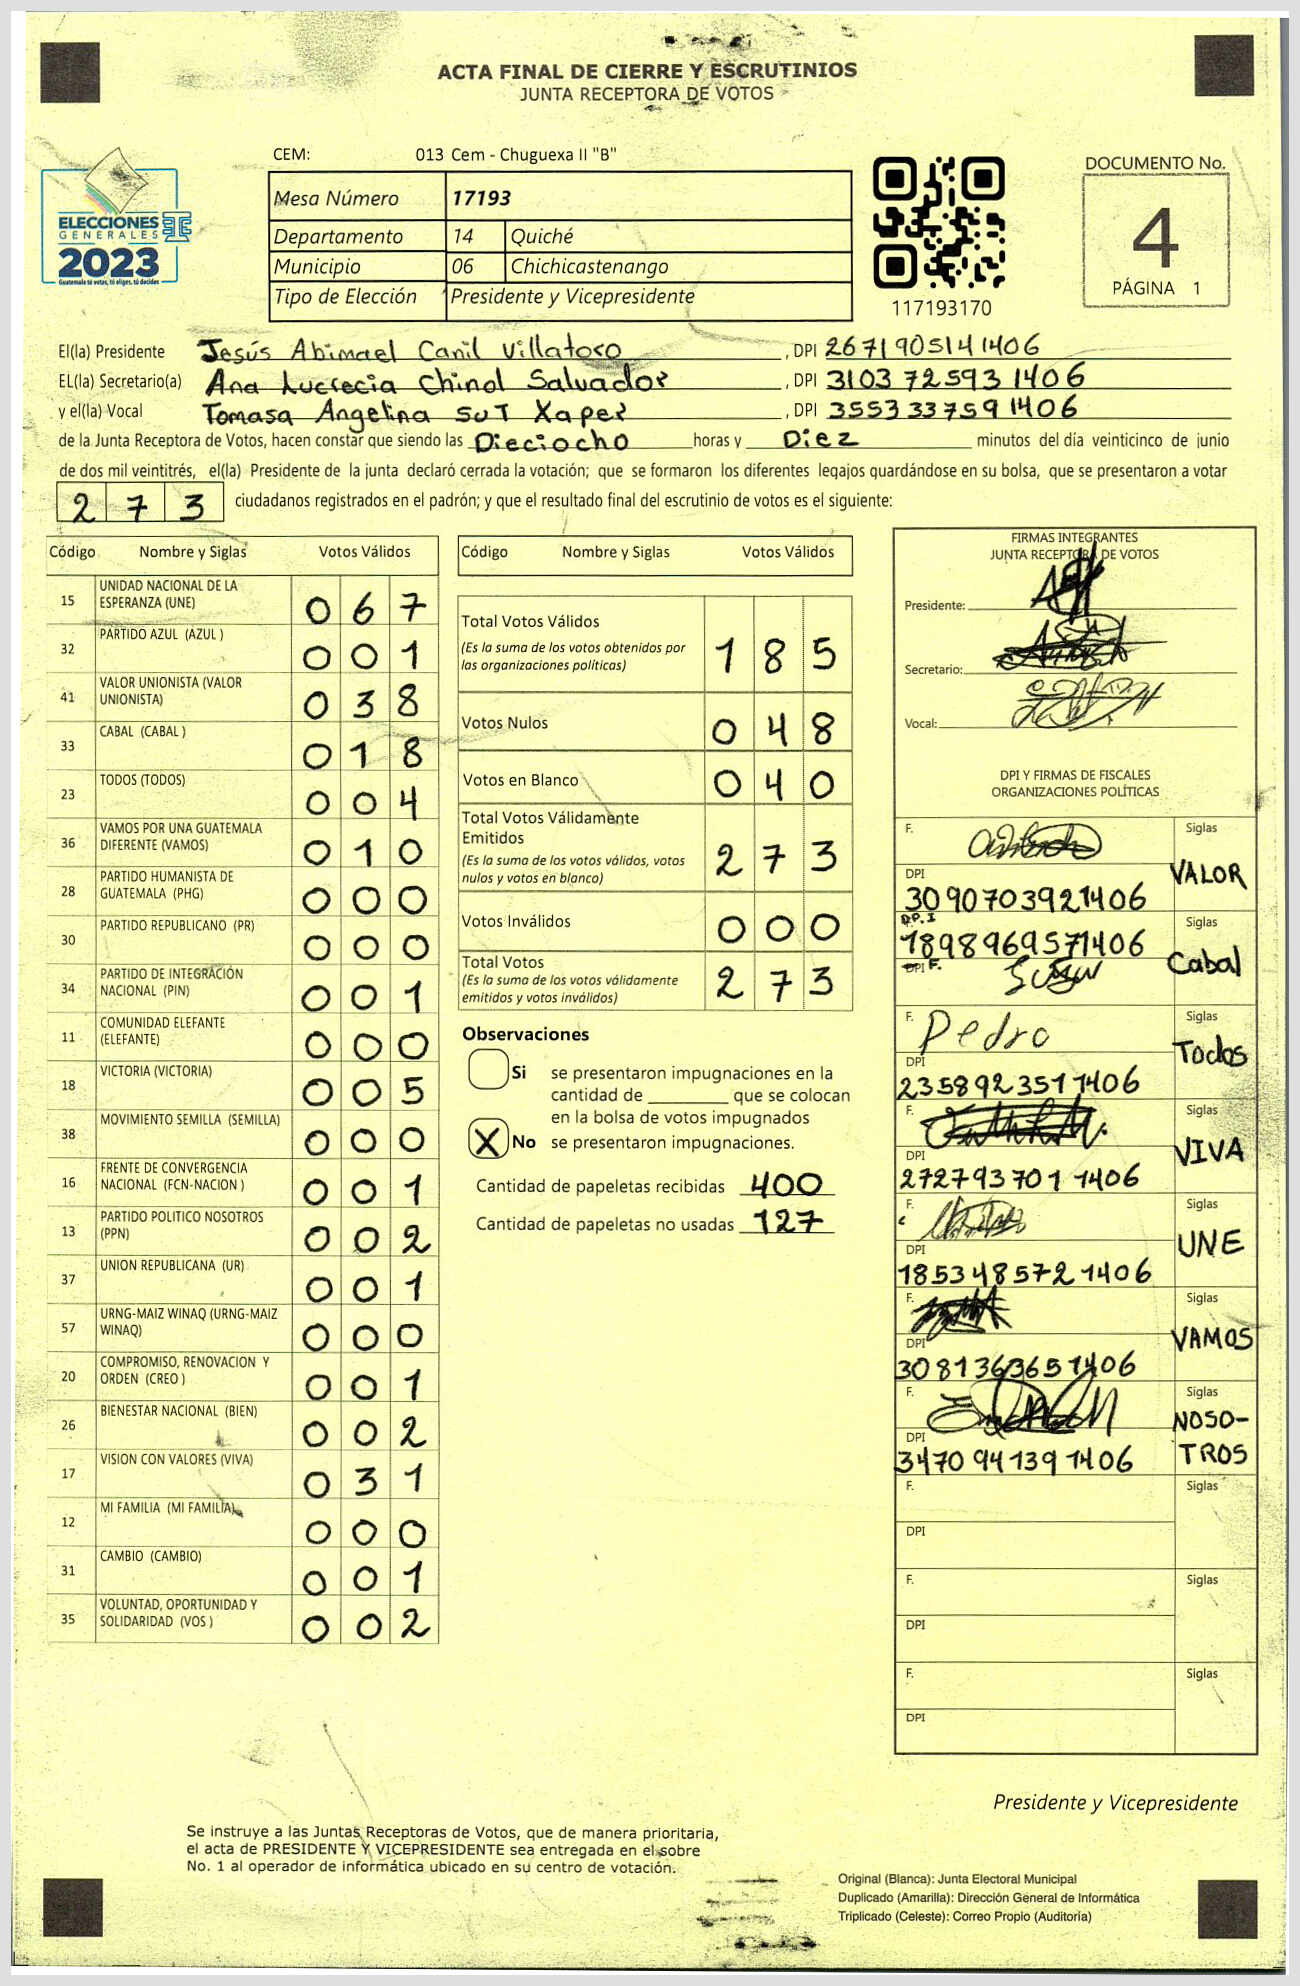 ACTA FINAL DE CIERRE Y ESCRUTINIOS
JUNTA RECEPTORA DE VOTOS
CEM: 013 Cem - Chuguexa II "B"
Mesa Número 17193
Departamento 14 Quiché
Municipio 06 Chichicastenango
Tipo de Elección Presidente y Vicepresidente
ELECCIONES
GENERALES
2023
Guatemala tú votas, tú eliges, tú decides
117193170
DOCUMENTO No.
4
PÁGINA 1
El(la) Presidente Jesús Abimael Canil Villatoro, DPI 2671905141406
EL(la) Secretario(a) Ana Lucrecia Chinol Salvador, DPI 3103725931406
y el(la) Vocal Tomasa Angelina SUT Xaper, DPI 3553337591406
de la Junta Receptora de Votos, hacen constar que siendo las Dieciocho horas y Diez minutos del día veinticinco de junio
de dos mil veintitrés, el(la) Presidente de la junta declaró cerrada la votación; que se formaron los diferentes legajos guardándose en su bolsa, que se presentaron a votar
273 ciudadanos registrados en el padrón; y que el resultado final del escrutinio de votos es el siguiente:
Código Nombre y Siglas Votos Válidos
15 UNIDAD NACIONAL DE LA
ESPERANZA (UNE) 067
32 PARTIDO AZUL (AZUL ) 001
41 VALOR UNIONISTA (VALOR
UNIONISTA) 038
33 CABAL (CABAL ) 018
23 TODOS (TODOS) 004
36 VAMOS POR UNA GUATEMALA
DIFERENTE (VAMOS) 010
28 PARTIDO HUMANISTA DE
GUATEMALA (PHG) 000
30 PARTIDO REPUBLICANO (PR) 000
34 PARTIDO DE INTEGRACIÓN
NACIONAL (PIN) 001
11 COMUNIDAD ELEFANTE
(ELEFANTE) 000
18 VICTORIA (VICTORIA) 005
38 MOVIMIENTO SEMILLA (SEMILLA) 000
16 FRENTE DE CONVERGENCIA
NACIONAL (FCN-NACION ) 001
13 PARTIDO POLITICO NOSOTROS
(PPN) 002
37 UNION REPUBLICANA (UR) 001
57 URNG-MAIZ WINAQ (URNG-MAIZ
WINAQ) 000
20 COMPROMISO, RENOVACION Y
ORDEN (CREO ) 001
26 BIENESTAR NACIONAL (BIEN) 002
17 VISION CON VALORES (VIVA) 031
12 MI FAMILIA (MI FAMILIA) 000
31 CAMBIO (CAMBIO) 001
35 VOLUNTAD, OPORTUNIDAD Y
SOLIDARIDAD (VOS ) 002
Código Nombre y Siglas Votos Válidos
Total Votos Válidos
(Es la suma de los votos obtenidos por
las organizaciones políticas) 185
Votos Nulos 048
Votos en Blanco 040
Total Votos Válidamente
Emitidos
(Es la suma de los votos válidos, votos
nulos y votos en blanco) 273
Votos Inválidos 000
Total Votos
(Es la suma de los votos válidamente
emitidos y votos inválidos) 273
Observaciones
Si se presentaron impugnaciones en la
cantidad de ________ que se colocan
en la bolsa de votos impugnados
X No se presentaron impugnaciones.
Cantidad de papeletas recibidas 400
Cantidad de papeletas no usadas 127
FIRMAS INTEGRANTES
JUNTA RECEPTORA DE VOTOS
Presidente:
Secretario:
Vocal:
DPI Y FIRMAS DE FISCALES
ORGANIZACIONES POLÍTICAS
F. Siglas
DPI VALOR
3090703921406
D.P.I Siglas
1898969571406 Cabal
DPI F.
F. Pedro Siglas
DPI Todos
2358923511406
F. Siglas
DPI VIVA
2727937011406
F. Siglas
DPI UNE
1853485721406
F. Siglas
DPI VAMOS
3081363651406
F. Siglas
DPI NOSO-
3470941391406 TROS
F. Siglas
DPI
F. Siglas
DPI
F. Siglas
DPI
Presidente y Vicepresidente
Se instruye a las Juntas Receptoras de Votos, que de manera prioritaria,
el acta de PRESIDENTE Y VICEPRESIDENTE sea entregada en el sobre
No. 1 al operador de informática ubicado en su centro de votación.
Original (Blanca): Junta Electoral Municipal
Duplicado (Amarilla): Dirección General de Informática
Triplicado (Celeste): Correo Propio (Auditoría)